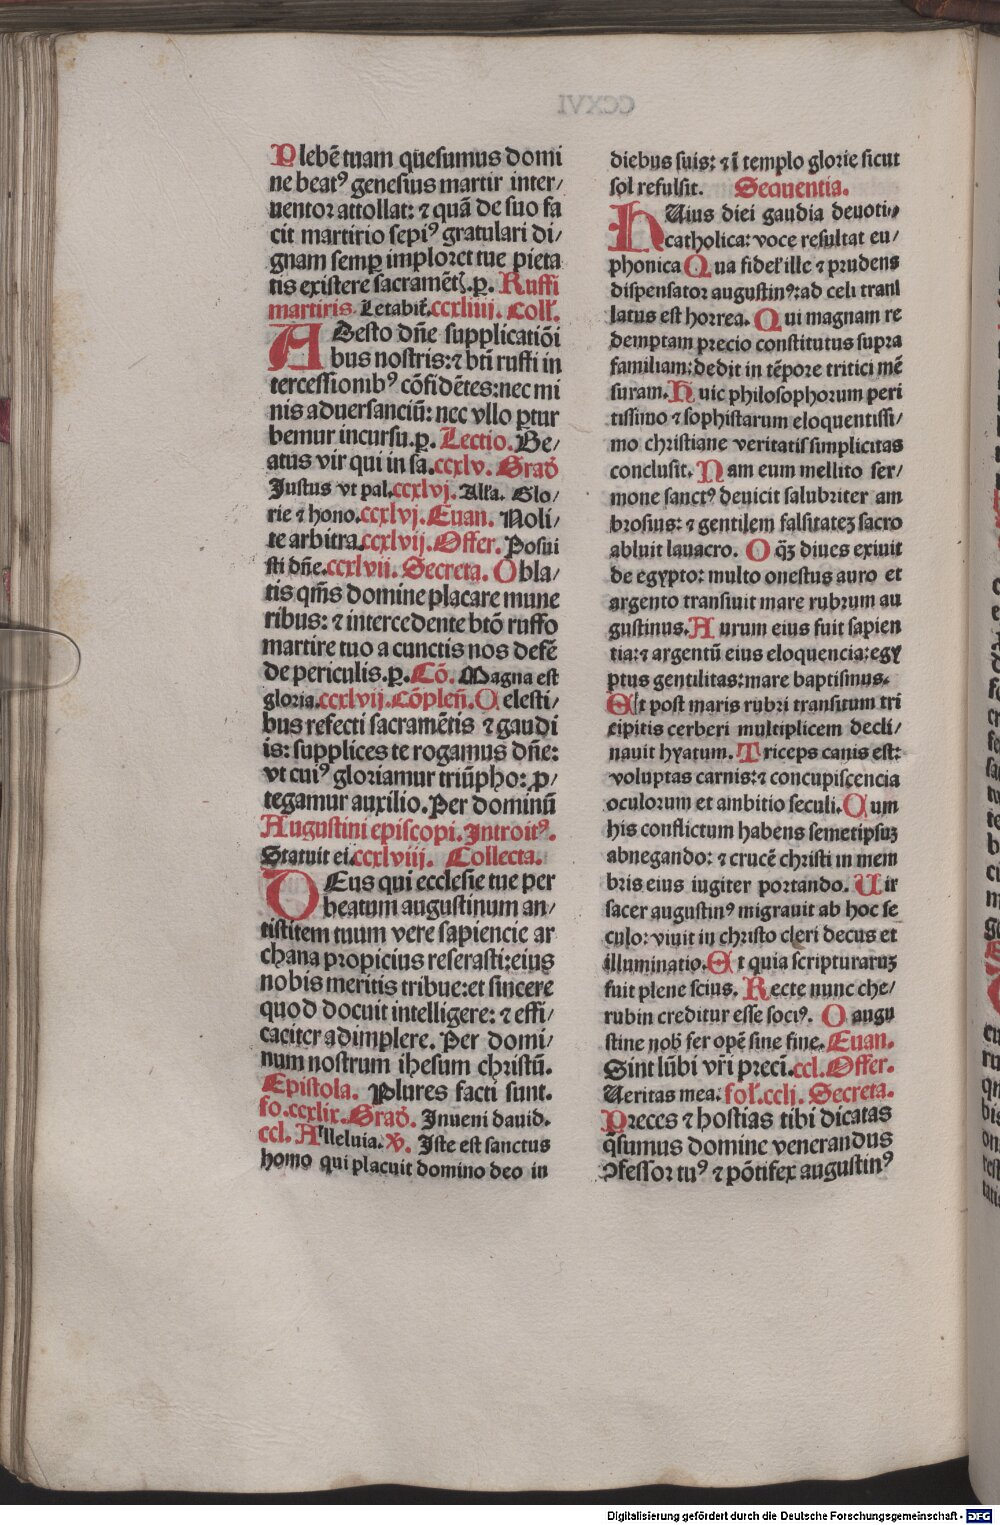 Plebē tuam quesumus domi
ne beatꝰ genesius martir inter/
uentor attollat: ⁊ quā de suo fa
cit martirio sepiꝰ gratulari di/
gnam semꝑ imploret tue pieta
tis existere sacramētꝭ.ꝑ. Ruffi
martiris. Letabit᷑.ccxliiij. Coll᷑.
ADesto dn̄e supplicatiōi
bus nostris:⁊ bt̄i ruffi in
tercessionibꝰ cōfidētes:nec mi
nis aduersanciū: nec vllo ꝑtur
bemur incursu.ꝑ. Lectio. Be/
atus vir qui in sa.ccxlv. Grad̄
Justus vt pal.ccxlvj. Alľa. Glo/
rie ⁊ hono.ccxlvj. Euan. Noli/
te arbitra.ccxlvij.Offer. Posui
sti dn̄e.ccxlvii. Secreta. Obla/
tis qm̄s domine placare mune
ribus: ⁊ intercedente btō ruffo
martire tuo a cunctis nos defē
de periculis.ꝑ.Cō. Magna est
gloria.ccxlvij.Cōpleñ.Celesti/
bus refecti sacramētis ⁊ gaudi
is: supplices te rogamus dn̄e:
vt cuiꝰ gloriamur triūpho: ꝓ/
tegamur auxilio. Per dominū
Augustini episcopi. Introitꝰ.
Statuit ei.ccxlviij. Collecta.
DEus qui ecclesie tue per
beatum augustinum an/
tistitem tuum vere sapiencie ar
chana propicius reserasti:eius
nobis meritis tribue:et sincere
quod docuit intelligere: ⁊ effi/
caciter adimplere. Per domi/
num nostrum ihesum christū.
Epistola. Plures facti sunt.
fo.ccxlix. Grad̄. Inueni dauid.
ccl. Alleluia. ℣. Iste est sanctus
homo qui placuit domino deo in
diebus suis: ⁊ ī templo glorie sicut
sol refulsit. Sequentia.
HUius diei gaudia deuoti/
catholica: voce resultat eu/
phonica Qua fidel᷑ ille ⁊ prudens
dispensator augustinꝰ:ad celi tranſ
latus est horrea. Qui magnam re
demptam precio constitutus supra
familiam:dedit in tēpore tritici mē
suram. Huic philosophorum peri
tissimo ⁊ sophistarum eloquentissi/
mo christiane veritatis simplicitas
conclusit. Nam eum mellito ser/
mone sanctꝰ deuicit salubriter am
brosius: ⁊ gentilem falsitateꝫ sacro
abluit lauacro. O qꝫ̄ diues exiuit
de egypto: multo onestus auro et
argento transiuit mare rubrum au
gustinus. Aurum eius fuit sapien
tia:⁊ argentū eius eloquencia:egy
ptus gentilitas:mare baptismus.
Et post maris rubri transitum tri
cipitis cerberi multiplicem decli/
nauit hyatum. Triceps canis est:
voluptas carnis:⁊ concupiscencia
oculorum et ambitio seculi. Cum
his conflictum habens semetipsuꝫ
abnegando: ⁊ crucē christi in mem
bris eius iugiter portando. Uir
sacer augustinꝰ migrauit ab hoc se
culo: viuit in christo cleri decus et
illuminatio. Et quia scripturaruꝫ
fuit plene scius. Recte nunc che/
rubin creditur esse sociꝰ. O augu
stine nob᷒ fer opē sine fine. Euan.
Sint lūbi vr̄i preci.ccl. Offer.
Ueritas mea. fol᷑.cclj. Secreta.
Preces ⁊ hostias tibi dicatas
q̄sumus domine venerandus
ↄfessor tuꝰ ⁊ pōtifex augustinꝰ
Digitalisierung gefördert durch die Deutsche Forschungsgemeinschaft - DFG